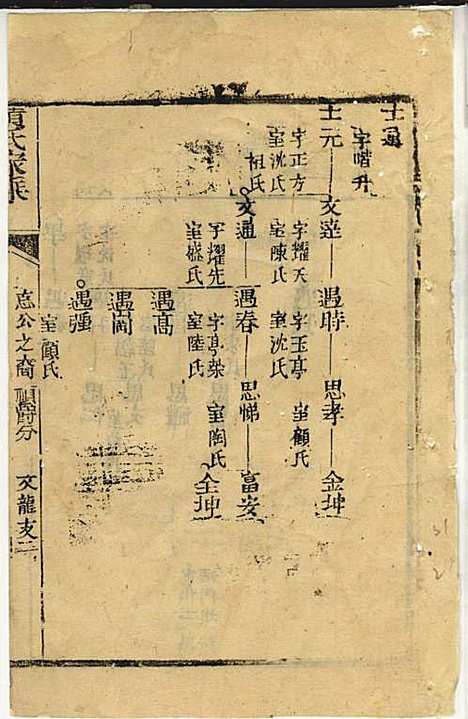 字喈升
士元
字正方
室沈氏
文達
字耀天
室陳氏
遇時
字玉亭
室沈氏
思孝
室顧氏
金坤
文通
字耀先
室盛氏
遇春
字亭榮
室陸氏
思悌
室陶氏
富安
全坤
遇高
遇岡
遇强
室顧氏
氏家乘
公之裔
文龍支二